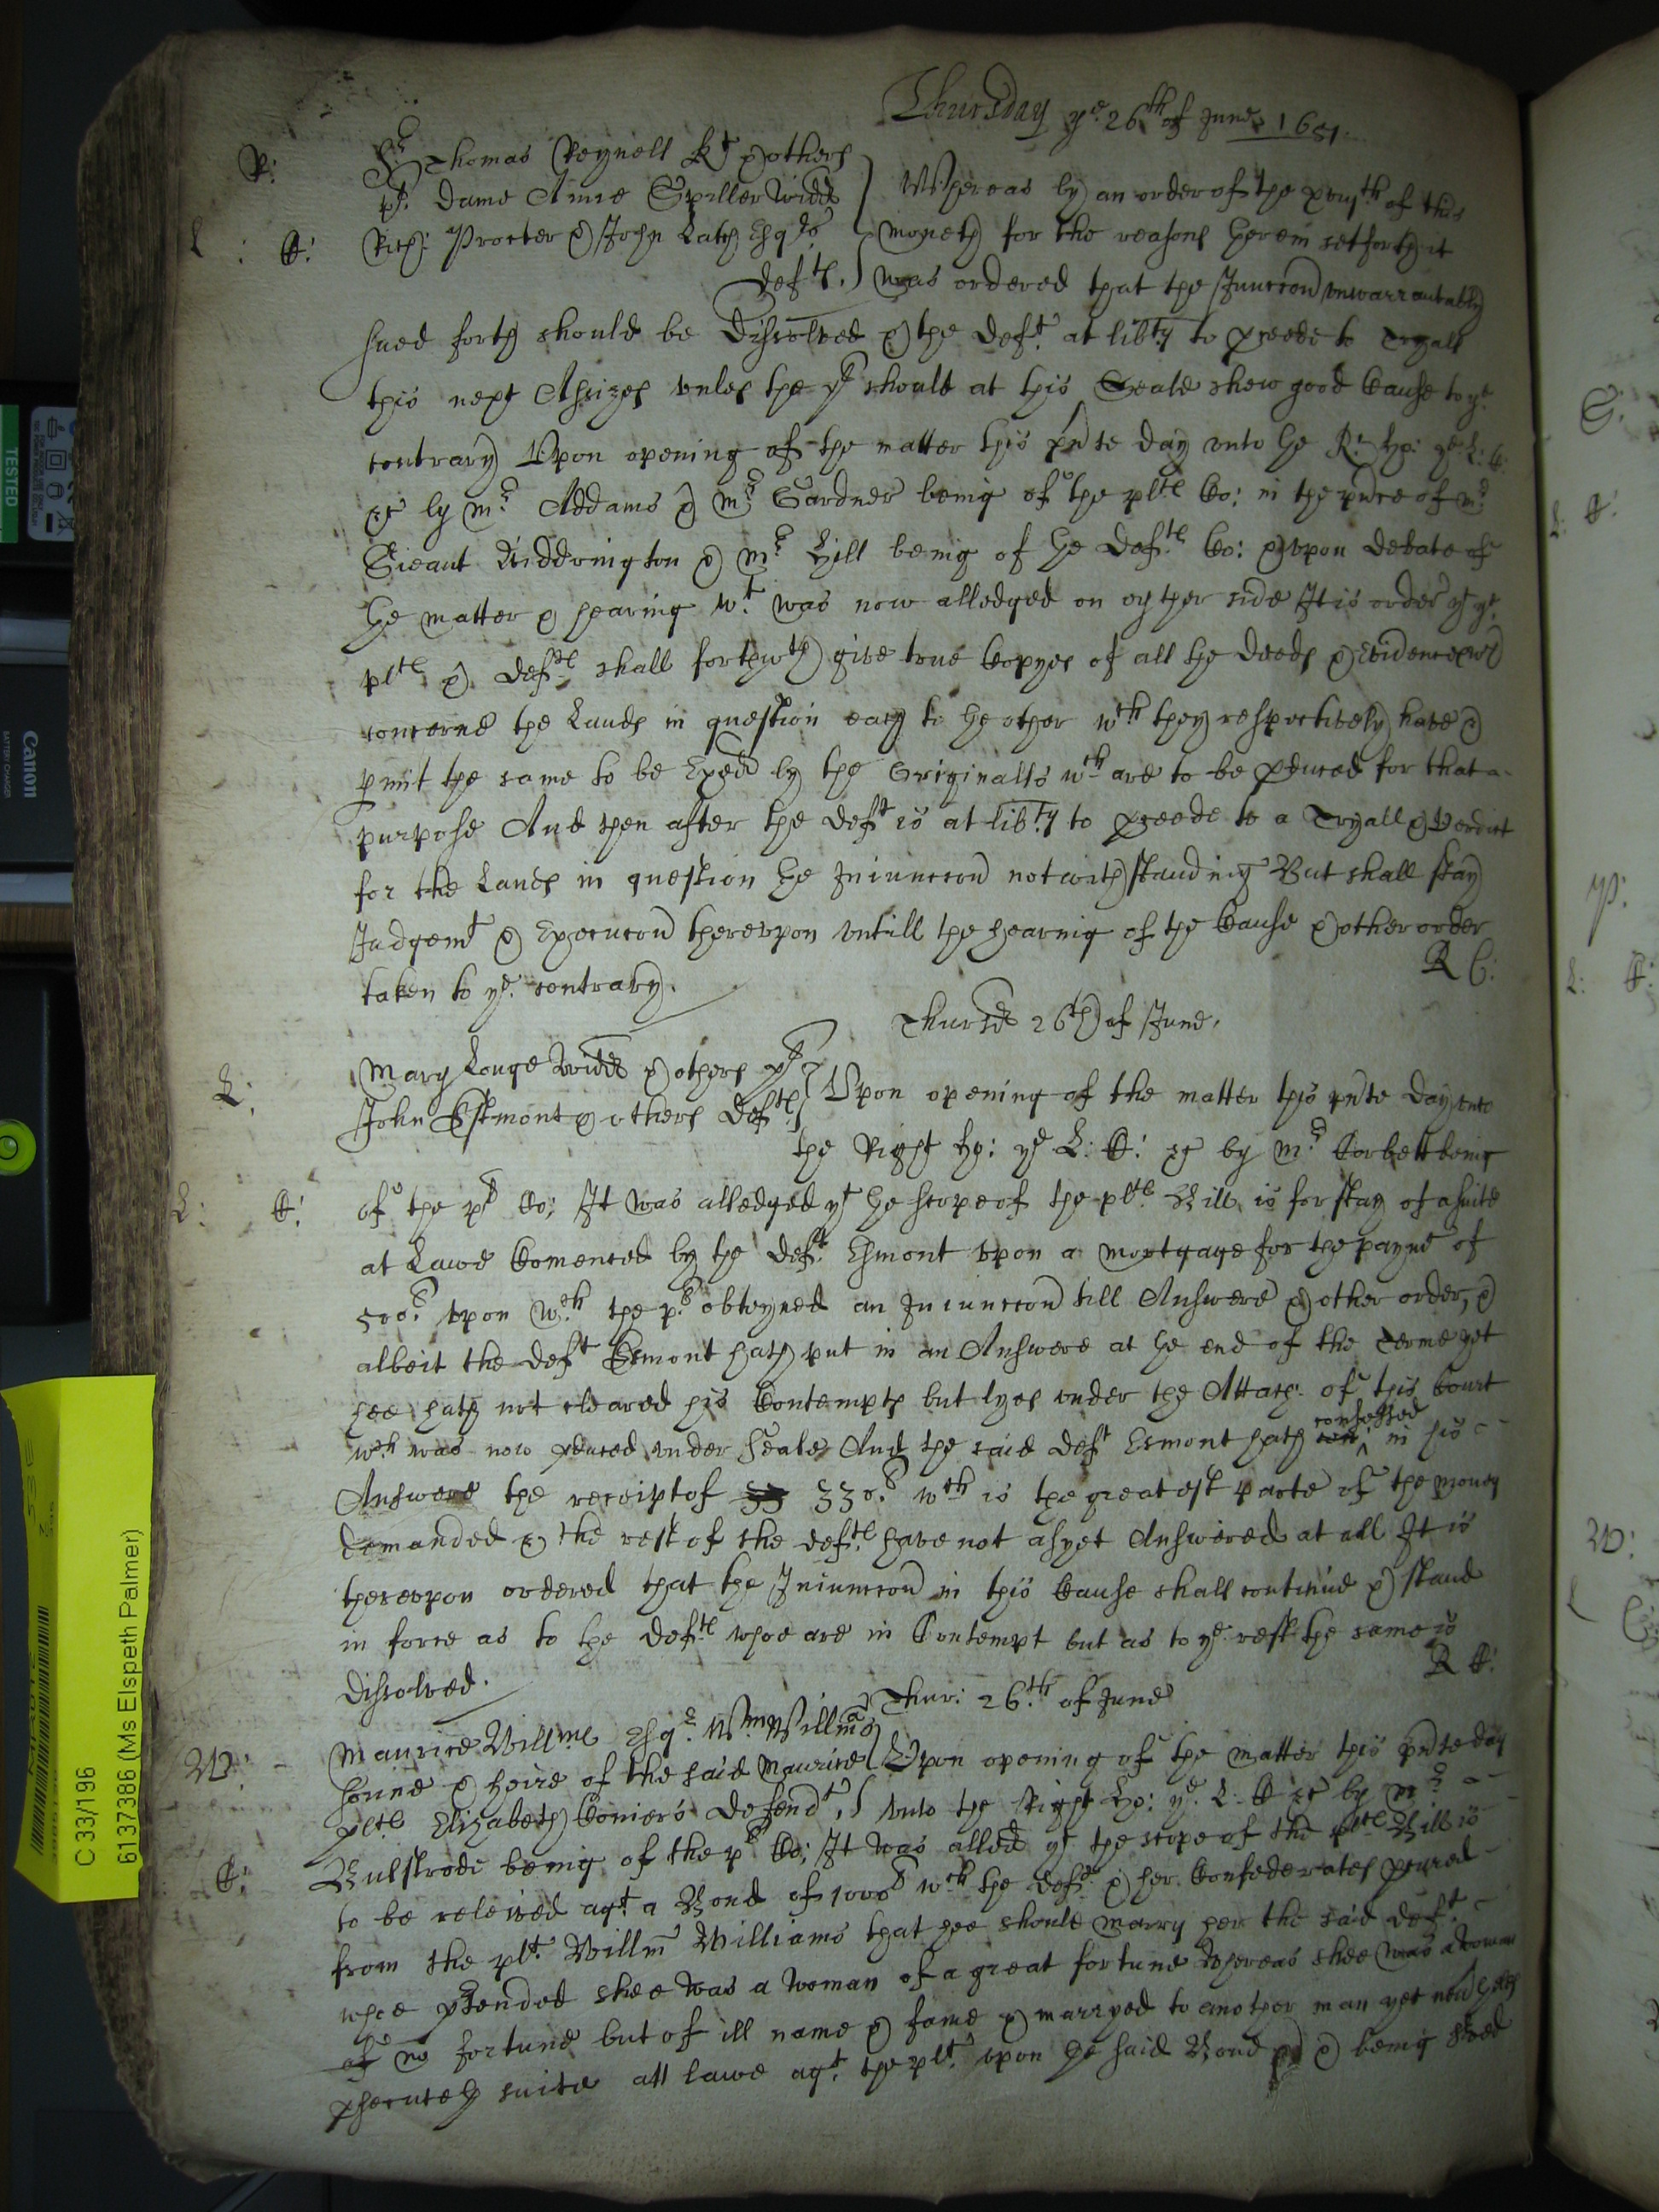 Thursday ye 26th of June 1651
R:
Sr Thomas Reynell Kt & others
plt. Dame Anne Spiller Widd
Whereas by an order of the xviijth of this
L: C:
Rich: Procter & John Latch Esqrs
moneth for the reasons therein setforth it
Defts.
was ordered that the Iniunccon unwarrantably
sued forth should be Dissolved & the Deft. at libty to proceede to Tryall
this next Assizes unles the plt should at this Seale shew good Cause to ye
contrary Upon opening of the matter this pnte day unto the Rt. Ho: ye L: C:
&c by Mr. Addams & Mr. Gardner being of the plts Co: in the pnce of Mr
Sieant & Mr. Hill being of the Defts Co: & upon Debate of
the matter & hearing wt. was now alledged on eyther side It is order yt ye
plts & Defts shall forthwth give true Copyes of all the Deeds & Evidences wch
concerne the Lands in question each to the other wch they respectively have &
pmit the same to be Exed by the Originalls wch are to be pduced for that
purpose And then after the Deft is at libty to proceede to a Tryall & Verdict
for the Lands in question the Iniunccon notwithstanding But shall stay
Judgemt & Execucon thereupon untill the hearing of the Cause & other order
taken to ye. contrary.
R C:
Thursd 26th of June.
Mary Longe Widd & others plt
L:
John Estmont & others Defts
Upon opening of the matter this pnte day unto
the Right Ho: ye L: C: &c by Mr Corbett being
L: C:
of the plt Co: It was alledged yt the scope of the plts Bill is for stay of a suite
at Lawe Comenced by the Deft. Esmont upon a mortgage for the paymt of
500l. upon wch the plt obteyned an Iniunccon till Answere & other order, &
albeit the Deft Esmont hath put in an Answere at the end of the Terme yet
hee hath not cleared his Contempts but lyes under the Attach: of this Court
confessed
wch was now pduced under Seale And the said Deft Esmont hath in his
Answere the receipt of 330l. wch is the greatest parte of the money
demanded & the rest of the defts. have not as yet Answered at all It is
thereupon ordered that the Iniunccon in this Cause shall continue & stand
in force as to the Defts whoe are in Contempt but as to ye. rest the same is
Dissolved.
R C:
Thur: 26th of June
W:
Maurice Willms Esqr. Wm Willms
sonne & heire of the said Maurice
Upon opening of the matter this pnte day
plts Elizabeth Coniers Defendt.
unto the Right Ho: ye. L: C &c by Mr
C:
Bulstrode being of the plt Co: It was alled yt the scope of the plts Bill is
to be releived agt. a Bond of 1000l wch the Deft. & her Confederates pcured
from the plt. Willm Williams that hee should marry her the said deft
whoe ptended shee was a Woman of a great fortune Whereas shee was a Woman
of no fortune but of ill name & fame & marryed to another man yet
psecuteth suite att lawe agt. the plt. upon the said Bond & being
TESTED
Canon
BATTERY CHARGER
C 33/1196
6137386 (Ms Elspeth Palmer)